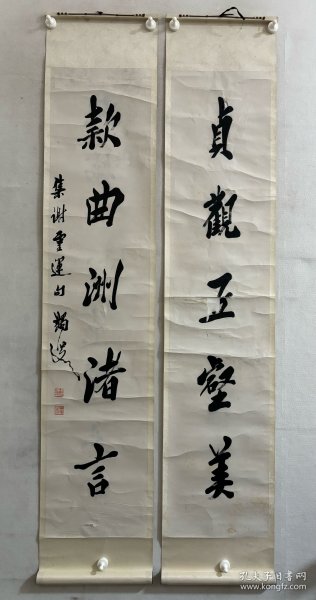 貞觀丘壑美
款曲洲渚言
集謝靈運句
孔夫子旧书网
www.kongfz.com